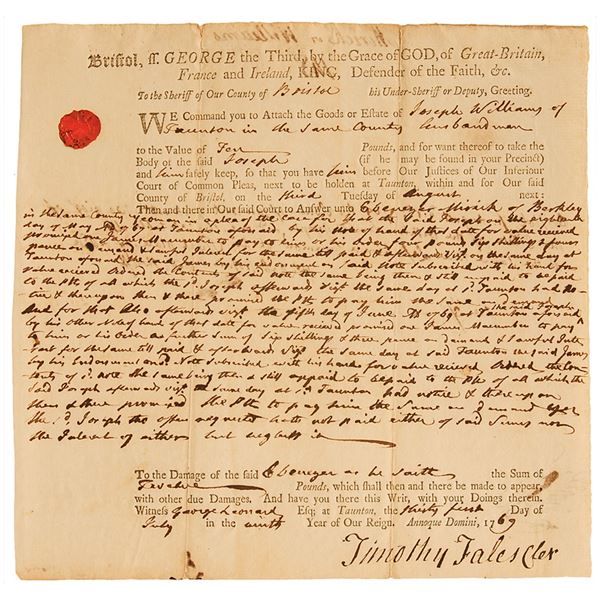 Bristol, ss. GEORGE the Third, by the Grace of GOD, of Great-Britain,
France and Ireland, KING, Defender of the Faith, &c.
To the Sheriff of Our County of Bristol his Under-Sheriff or Deputy, Greeting.
WE Command you to Attach the Goods or Estate of Joseph Williams of
Taunton in the same County Husbandman
to the Value of Ten Pounds, and for want thereof to take the
Body of the said Joseph (if he may be found in your Precinct)
and him safely keep, so that you have him before Our Justices of Our Inferiour
Court of Common Pleas, next to be holden at Taunton, within and for Our said
County of Bristol, on the third Tuesday of August next:
Then and there in Our said Court to Answer unto Ebenezer of Berkley
in the same County Yeoman in a plea of the Case for that the said Joseph on the eighteenth
day of May 1769 at Taunton aforesd by his Note of hand of that date for value received
promised one James Macumber to pay to him or his order four pound Six shillings &
pence on demand & Lawful Interest for the same till paid & afterwards on the same day at
Taunton aforesd the said James by his endorsement on said Note Subscribed with his hand for
value received Ordered the Contents of said note the same being then still unpaid to be paid
to the Plt of all which the sd Joseph afterwards the same day at sd Taunton had No-
tice & thereupon then & there promised the Plt to pay him the same on demand
And for that Also afterwards the fifth day of June 1769 at Taunton aforesd the said Joseph
by his other Note of hand of that date for value received promised one James Macumber to pay
to him or his Order a further Sum of Six shillings & three pence on demand & Lawful Inte-
rest for the same till paid & afterwards the same day at said Taunton the said James
by his Endorsement on sd Note Subscribed with his hand for value received Ordered the Con-
tents of sd note the same being then still unpaid to be paid to the Plt of all which the
said Joseph afterwards the same day at sd Taunton had notice & thereupon
then & there promised the Plt to pay him the same on demand Yet
the sd Joseph tho often requested hath not paid either of said Sums nor
the Interest of either but neglects it
To the Damage of the said Ebenezer as he saith the Sum of
Twelve Pounds, which shall then and there be made to appear,
with other due Damages. And have you there this Writ, with your Doings therein.
Witness George Leonard Esq; at Taunton, the thirty first Day of
July in the ninth Year of Our Reign. Annoque Domini, 1769
Timothy Fales Cler